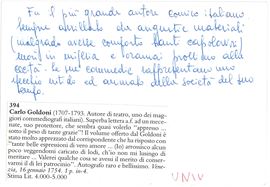 Fu il più grande autore comico italiano.
Sempre assillato da angustie materiali
(malgrado avesse comforts
morì in miseria e ormai
età. Le sue commedie rappresentano uno
specchio nitido ed animato della società del suo
tempo.
394
Carlo Goldoni (1707-1793. Autore di teatro, uno dei mag-
giori commediografi italiani). Superba lettera a.f. ad un mece-
nate, suo protettore, che sembra quasi volerlo "appresso ...
sotto il peso di tante grazie"! Il volume offerto dal Goldoni è
stato tanto apprezzato dal corrispondente che ha risposto con
"tante belle espressioni di vero amore ... (Io) arrossirei alcun
poco leggendomi caricato di lodi, ch'io non mi lusingo di
meritare ... Valerei qualche cosa se avessi il merito di conser-
varmi di lei patrocinio". Autografo raro e bellissimo. Vene-
zia, 16 gennaio 1754. 1 p. in-4.
Stima Lit. 4.000-5.000
UNIV